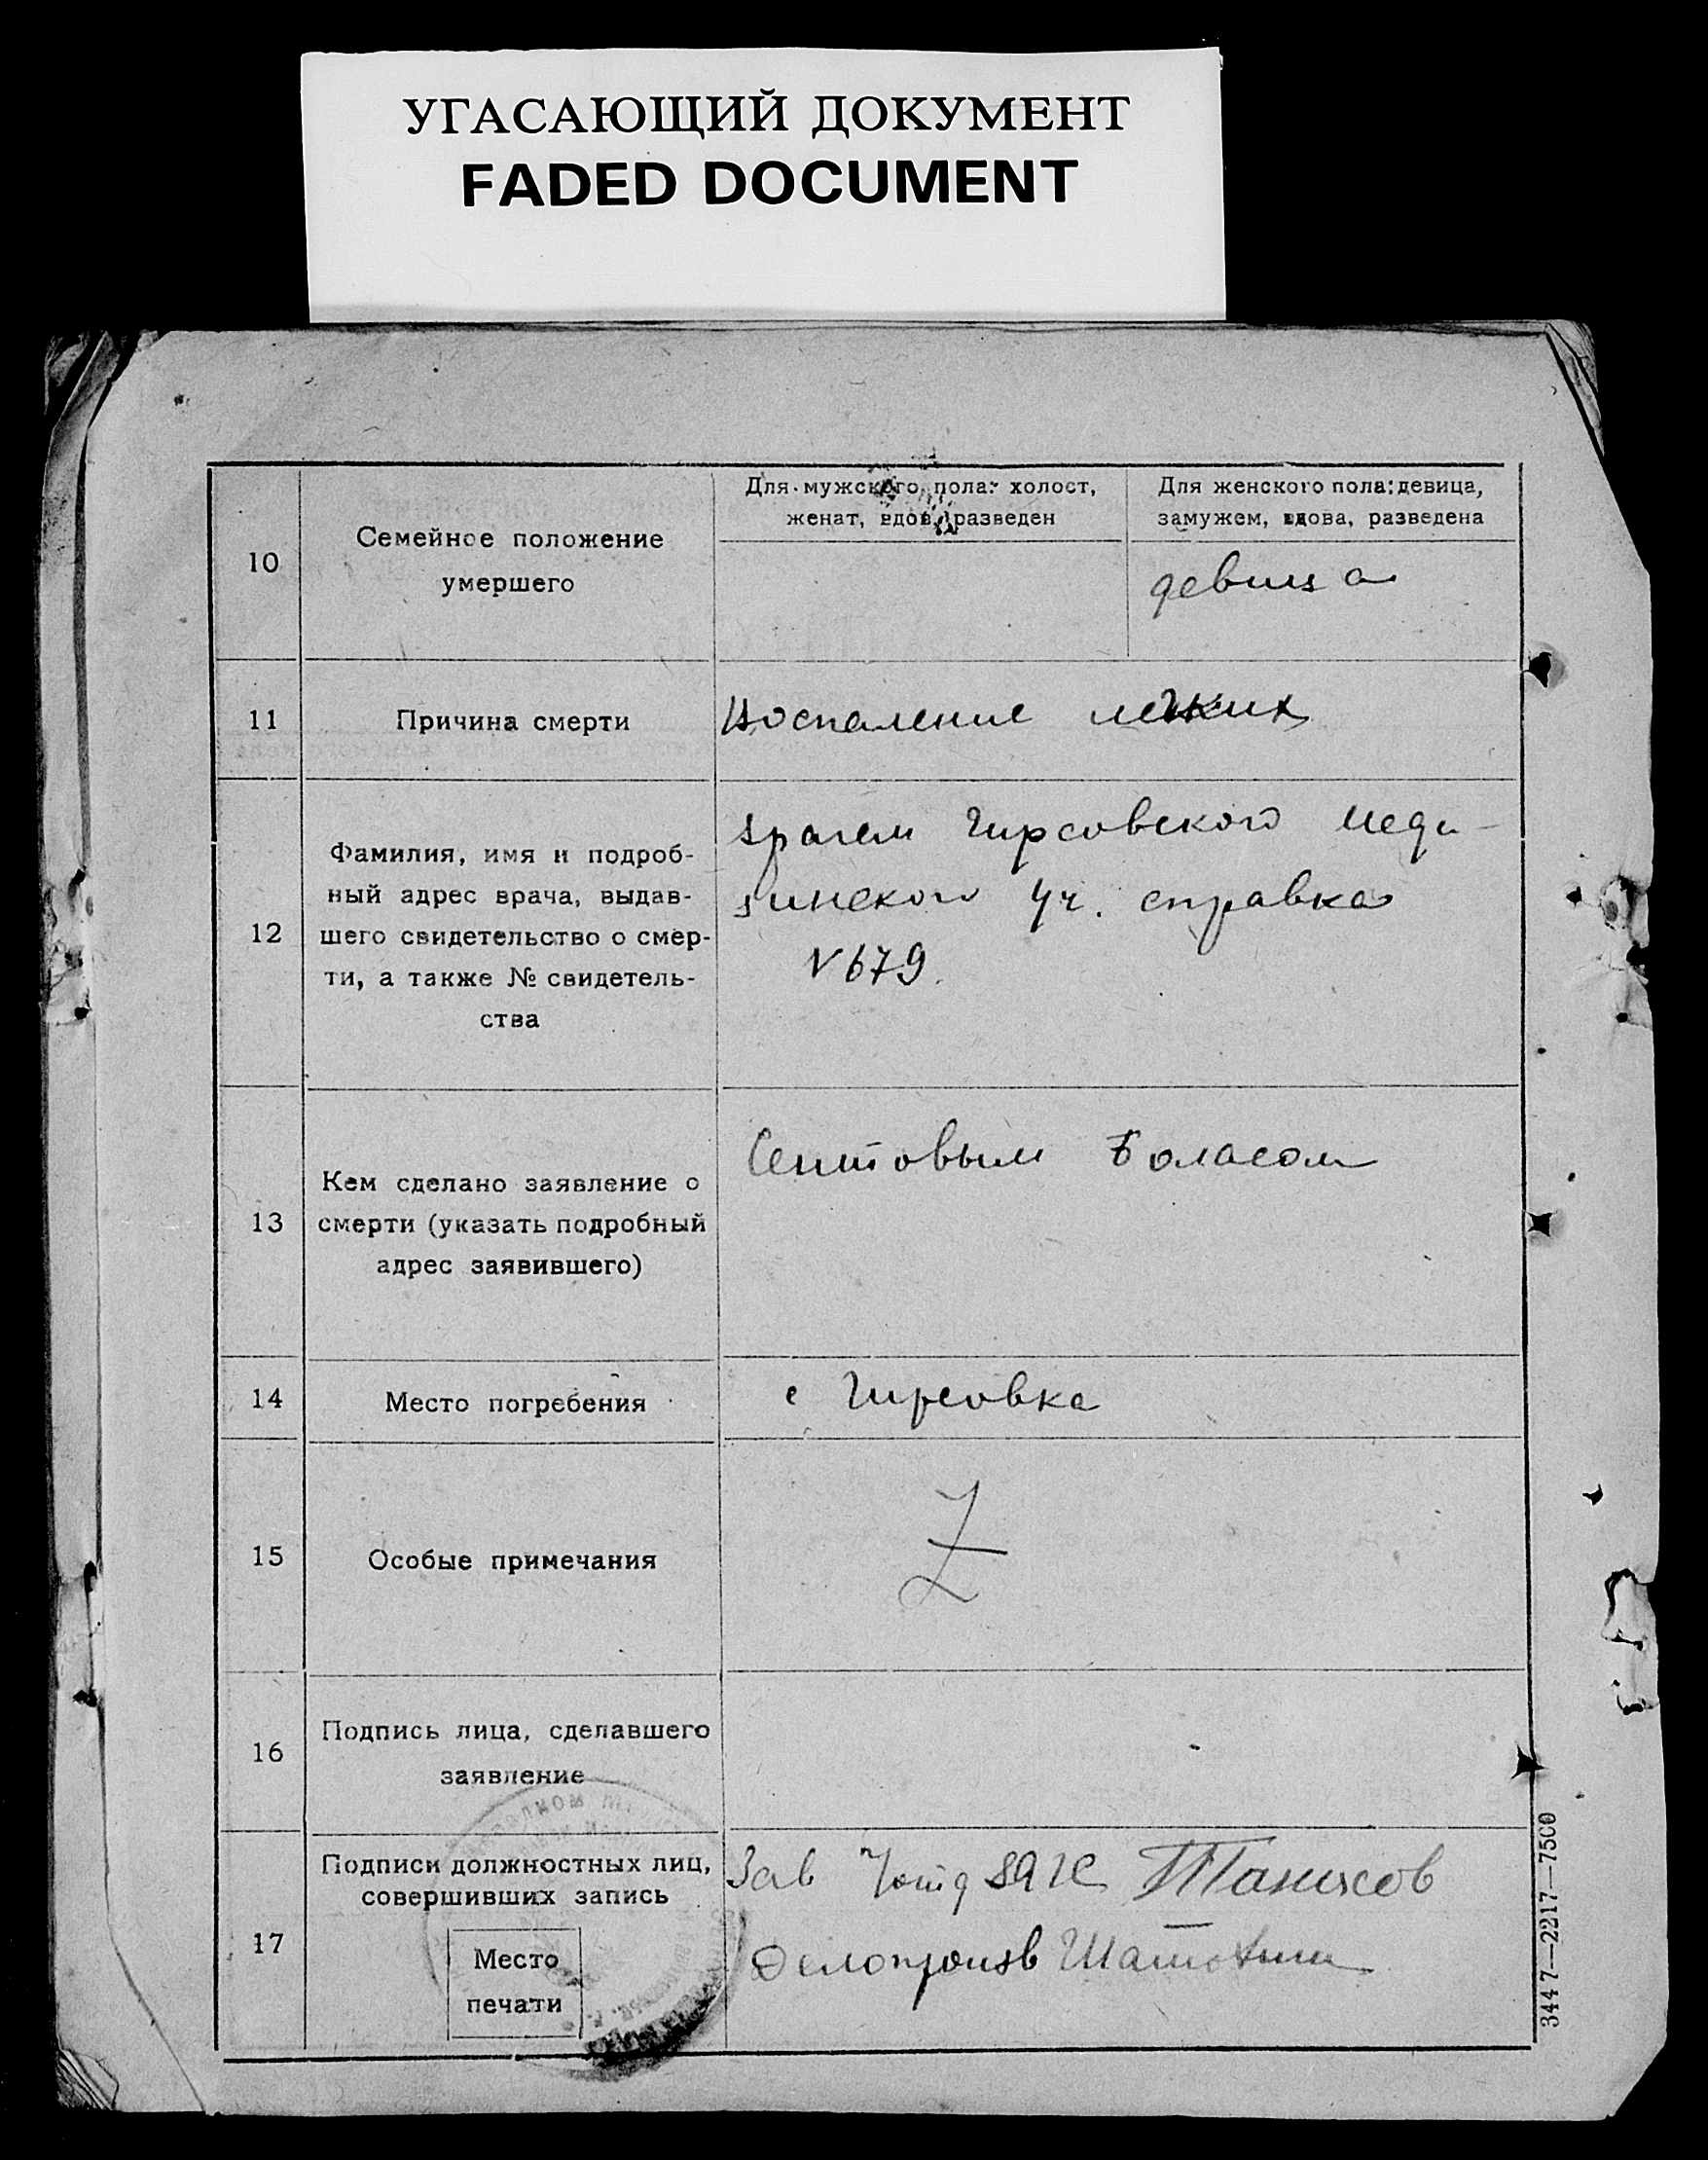 УГАСАЮЩИЙ ДОКУМЕНТ
FADED DOCUMENT
10
Семейное положение
умершего
Для мужского пола: холост,
женат, вдов, разведен
Для женского пола: девица,
замужем, вдова, разведена
девица
11
Причина смерти
Воспаление легких
12
Фамилия, имя и подроб-
ный адрес врача, выдав-
шего свидетельство о смер-
ти, а также № свидетель-
ства
врачем Гирсовского меди-
цинского уч. справка
N 679.
13
Кем сделано заявление о
смерти (указать подробный
адрес заявившего)
Сеитовым
14
Место погребения
с Гирсовка
15
Особые примечания
Z
16
Подпись лица, сделавшего
заявление
17
Подписи должностных лиц,
совершивших запись
Место
печати
Зав
Делопроизв
3447—2217—7500